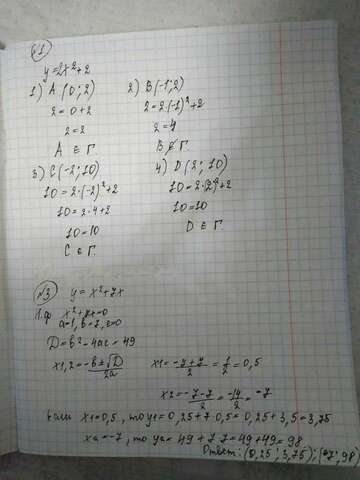 №1
y=2x²+2
1) A (0;2) 2) B(-1;2)
2=0+2 2=2·(-1)²+2
2=2 2=4
A ∈ Г. B ∉ Г.
3) C(-2;10) 4) D(2;10)
10=2·(-2)²+2 10=2·2²+2
10=2·4+2 10=10
10=10 D ∈ Г.
C ∈ Г.
№3 y=x²+7x
Н.ф x²+7x=0
a=1, b=7, c=0
D=b²-4ac=49
x1,2=-b±√D/2a x1=-7+7/2=1/2=0,5
x2=-7-7/2=-14/2=-7
если x1=0,5, то y1=0,25+7·0,5=0,25+3,5=3,75
x2=-7, то y2=49+7·7=49+49=98
Ответ: (0,25;3,75);(-7;98)